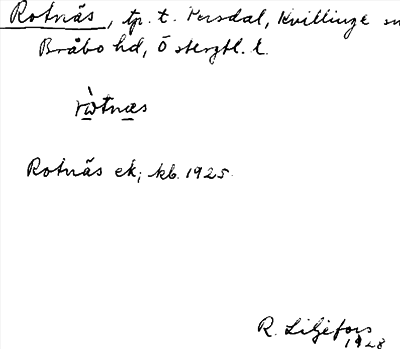 Rotnäs, tp. t. Persdal, Kvillinge sn
Bråbo hd, Östergtl. l.
ròtnæs
Rotnäs ek; kb. 1925.
R. Liljefors
1928